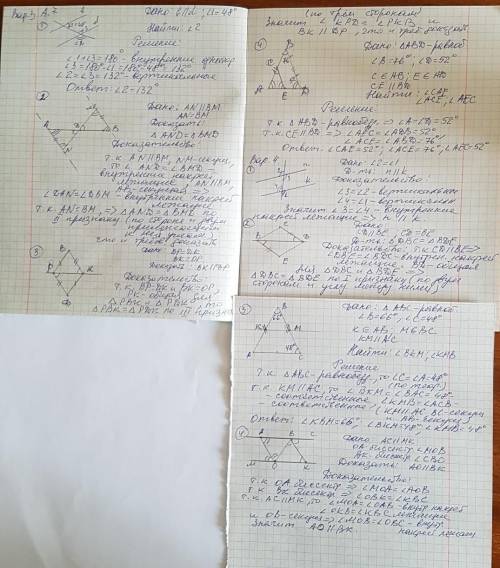 Вар 3
①
Дано: b||d; ∠1=48°
Найти: ∠2
Решение:
∠1+∠3=180° - внутренние одност.
∠3=180°-∠1=180°-48°=132°
∠2=∠3=132° - вертикальные
Ответ: ∠2=132°
②
Дано: AN||BM
AN=BM
Доказать:
△AND=△BMD
Доказательство:
т.к. AN||BM, NM-секущ,
то ∠AND=∠BMD
внутренние накрест
лежащие, AN||BM,
AB-секущая
∠DAN=∠DBM - внутренние накрест
лежащие
т.к. AN=BM, => △AND=△BMD по
II признаку (по стороне и 2м
прилежащим
к ней углам)
что и треб. доказать
③
Дано: BP=DK
BK=DP
Доказать: BK||PD
Доказательство:
т.к. BP=DK и BK=DP,
PK-общая для
△PBK и △PDK, то
△PBK=△PDK по III призн
(по трём сторонам)
Значит ∠KPD=∠PKB и
BK||DP, что и треб доказать
④
Дано: △ABD-равноб
∠B=76°; ∠D=52°
C∈AB; E∈AD
CE||BD
Найти: ∠CAE
∠ACE, ∠AEC
Решение:
т.к. △ABD-равнобедр => ∠A=∠D=52°
т.к. CE||BD => ∠AEC=∠ADB=52°
∠ACE=∠ABD=76°
Ответ: ∠CAE=52°, ∠ACE=76°, ∠AEC=52°
Вар. 4
①
Дано: ∠2=∠1
Д-ть: n||k
Доказательство:
∠3=∠2 - вертикальные
∠4=∠1 - вертикальн
Значит ∠3=∠4 - внутренние
накрест лежащие => n||k
②
Дано:
CD||BE, CD=BE
Д-ть: △DBC=△BDE
Доказательство: т.к. CD||BE =>
∠DBE=∠BDC - внутрен. накрест
лежащие. BD общая
для △DBC и △BDE =>
△DBC=△BDE по I признаку (по двум
сторонам и углу между ними)
③
Дано: △ABC-равноб.
∠B=66°, ∠C=48°
K∈AB; M∈BC
KM||AC
Найти: ∠BKM; ∠KMB
Решение
т.к. △ABC-равнобедр, то ∠C=∠A=48°
т.к. KM||AC, то ∠BKM=∠BAC=48°
- соответственные, ∠KMB=∠ACB-
- соответственные (KM||AC, BC-секущ
и AB-секущ)
Ответ: ∠KBM=66°, ∠BKM=48°, ∠KMB=48°
④
Дано
AC||MK
OA-биссектр ∠MOB
BK-биссектр ∠CBO
Доказать: AO||BK
Доказательство:
т.к. OA-биссектр => ∠MOA=∠AOB
т.к. BK биссектр => ∠OBK=∠KBC
т.к. AC||MK, то ∠MOA=∠OAB-внутр. накрест
∠OKB=∠KBC лежащие
и OB-секущ => ∠MOB=∠OBC-внутр
Значит AO||BK накрест лежащ